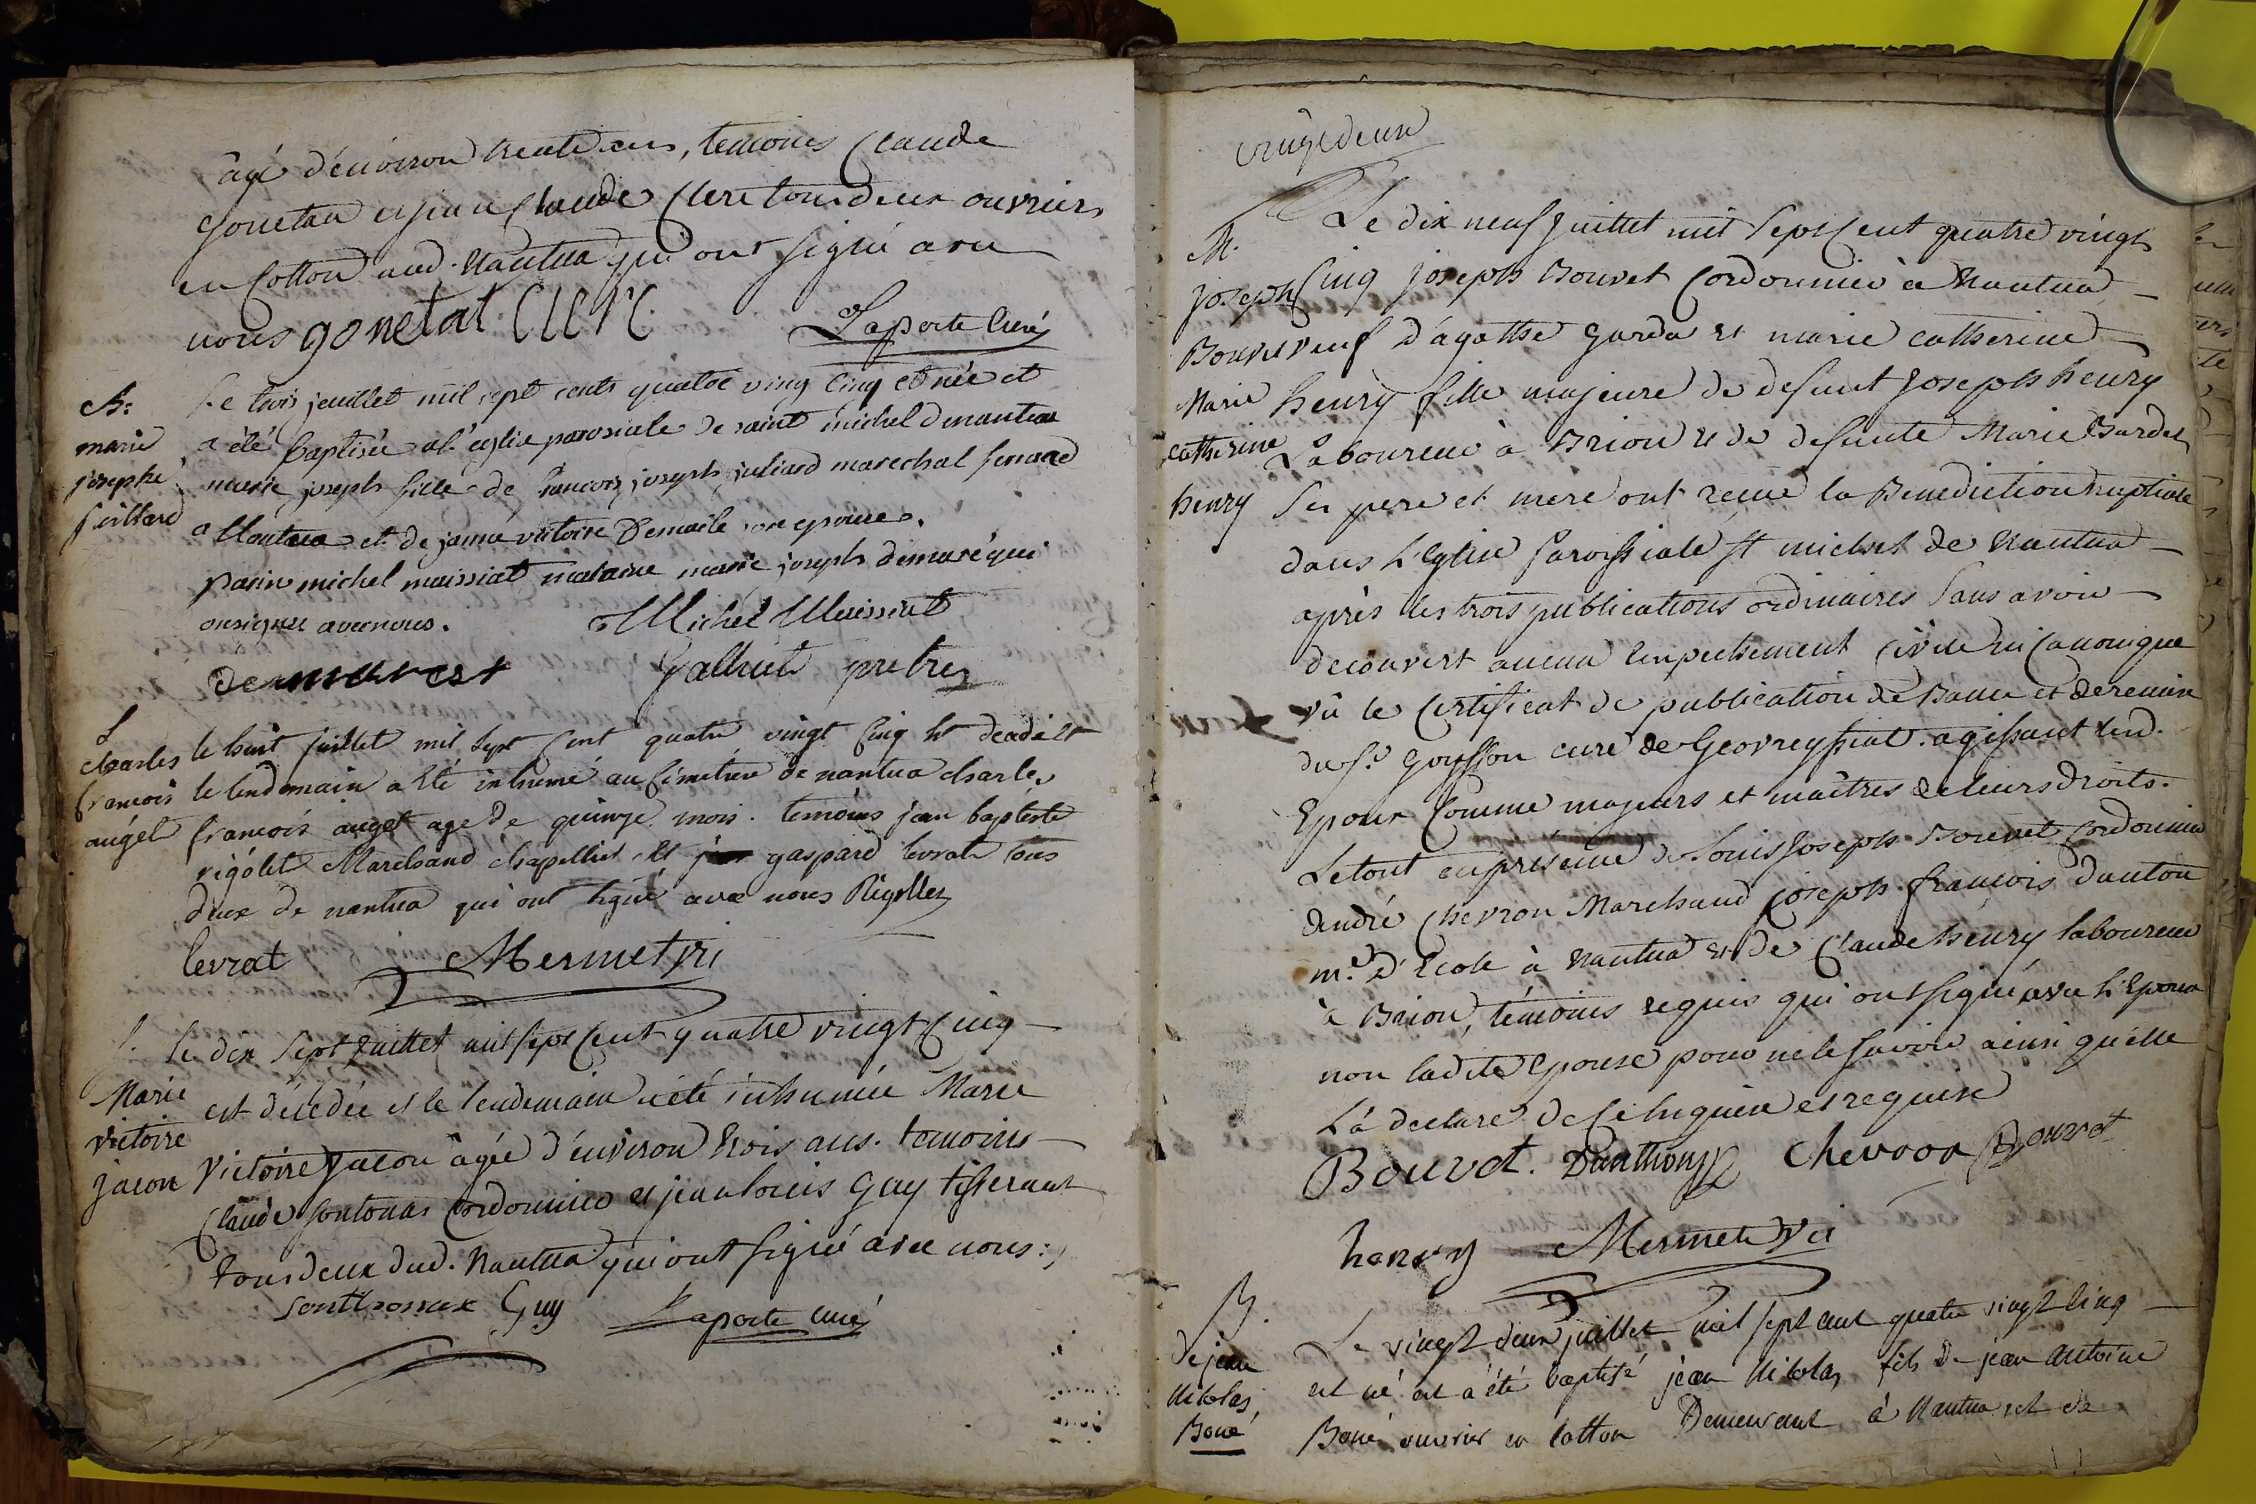 âgé d'environ trente ans, temoins Claude
gonetau et jean Claude Clere tous deux ouvriers
en Cotton aud. Nantua qui ont signé avec
nous gonetat Clerc
Laporte Curé
B.
marie
josephe
juillard
Le trois jeuillet mil sept cents quatre ving cinq et née et
a été baptisée a l'eglise parosiale de saint michel de nantua
marie joseph fille de francois joseph juliard marechal ferrand
a Nantua et de jeanne victoire Demaile son epouse.
parin michel maissiat maraine marie joseph demare qui
onsigner avec nous. Michel Maissiat
demarest Galliet pretre
S
charles
francois
auget
le huit juillet mil sept cent quatre vingt cinq est décédé et
le lendemain a été inhumé au cimetiere de nantua charles
francois auget age de quinze mois. temoins jean baptiste
rigolet Marchand chapellier et gaspard levrat tous
deux de nantua qui ont signé avec nous Rigollez
levrat Mermet vi
S.
Marie
Victoire
jacon
le dix sept juillet mil sept cent quatre vingt cinq
est décédée et le lendemain a été inhumée Marie
Victoire jacon agée d'environ trois ans. temoins
Claude sontonas Cordonnier et jean louis Guy tisserant
tous deux dud. Nantua qui ont signé avec nous:
sonthonax Guy Laporte curé
vingt deux
M.
joseph
Bouvet
Marie
Catherine
henry
Le dix neuf juillet mil sept cent quatre vingt
Cinq joseph Bouvet Cordonnier à Nantua
veuf d'agathe garda et marie catherine
henry fille majeure de defunt joseph henry
Laboureur à Brion et de defunte Marie Burdet
Ses pere et mere ont reçue la Benediction nuptiale
dans l'Eglise Paroissiale St michel de Nantua
après les trois publications ordinaires Sans avoir
decouvert aucun Empechement Civile ni Canonique
vû le Certificat de publication de Bans et de remise
du Sr. Goyffon curé de Geovreyssiat. agissant lesd.
Epoux Comme majeurs et maîtres de leurs droits.
Le tout en présence de Louis Joseph Bouvet Cordonnier
André Chevron Marchand joseph françois Danton
me. d'Ecole à Nantua et de Claude henry laboureur
à Brion, témoins requis qui ont signé avec l'Epoux
non ladite Epouse pour ne le savoir ainsi quelle
l'a declaré de ce enquise et requise
Bouvet. Danthon Chevron Bouvet
henry Mermet vi
B.
de jean
Nicolas
Boné
Le vingt deux juillet mil sept cent quatre vingt cinq
est né et a été baptisé jean Nicolas fils de jean antoine
Boné ouvrier en cotton Demeurant à Nantua et de